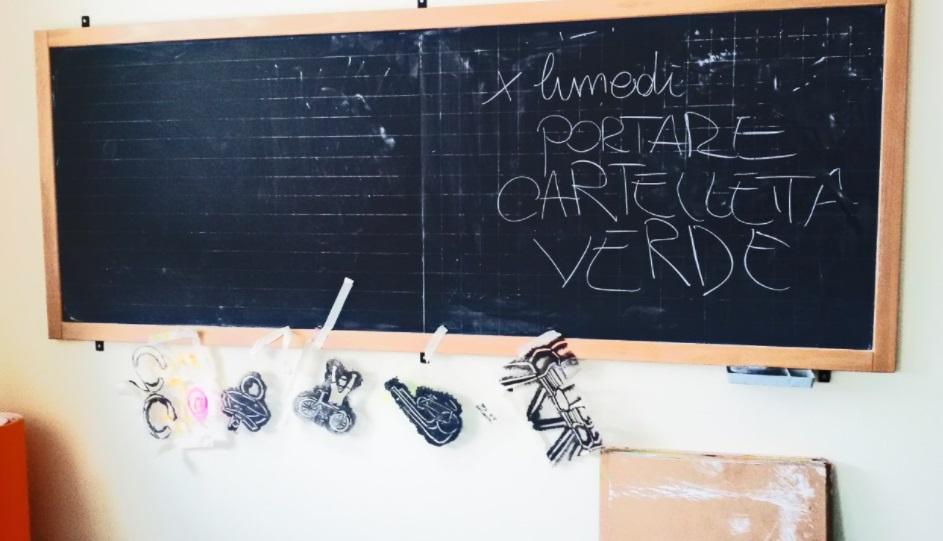 X lunedì
PORTARE
CARTELLETTA
VERDE